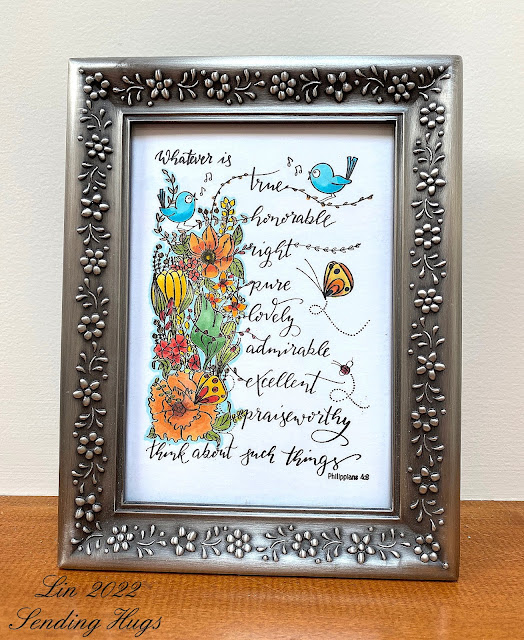 Whatever is
true
honorable
right
pure
lovely
admirable
excellent
praiseworthy
think about such things
Philippians 4:8
Lin 2022
Sending Hugs